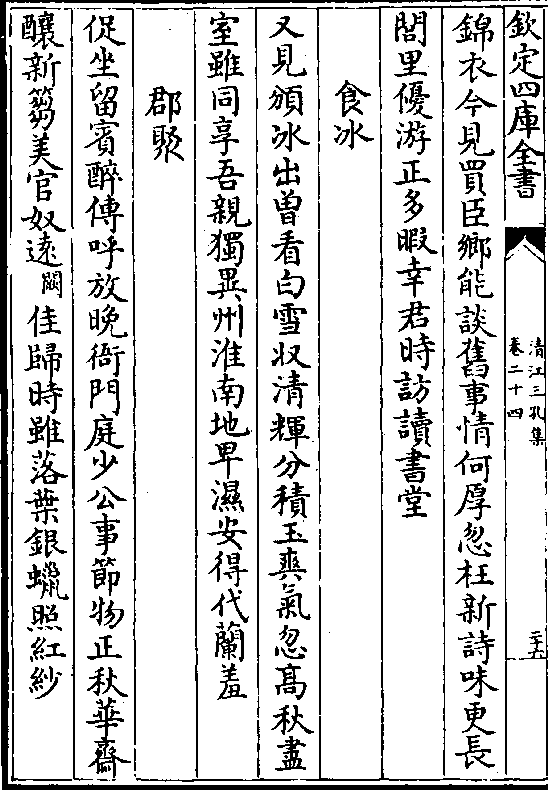 欽定四庫全書
清江三孔集
卷二十四
二十六
錦衣今見買臣鄉能談舊事情何厚忽枉新詩味更長
閭里優游正多暇幸君時訪讀書堂
食冰
又見頒冰出曽看白雪收清輝分積玉爽氣忽髙秋盡
室雖同享吾親獨異州淮南地卑濕安得代蘭羞
郡聚
促坐留賓醉傳呼放晚衙門庭少公事節物正秋華齋
釀新篘美官奴逺闕佳歸時雖落葉銀蠟照紅紗